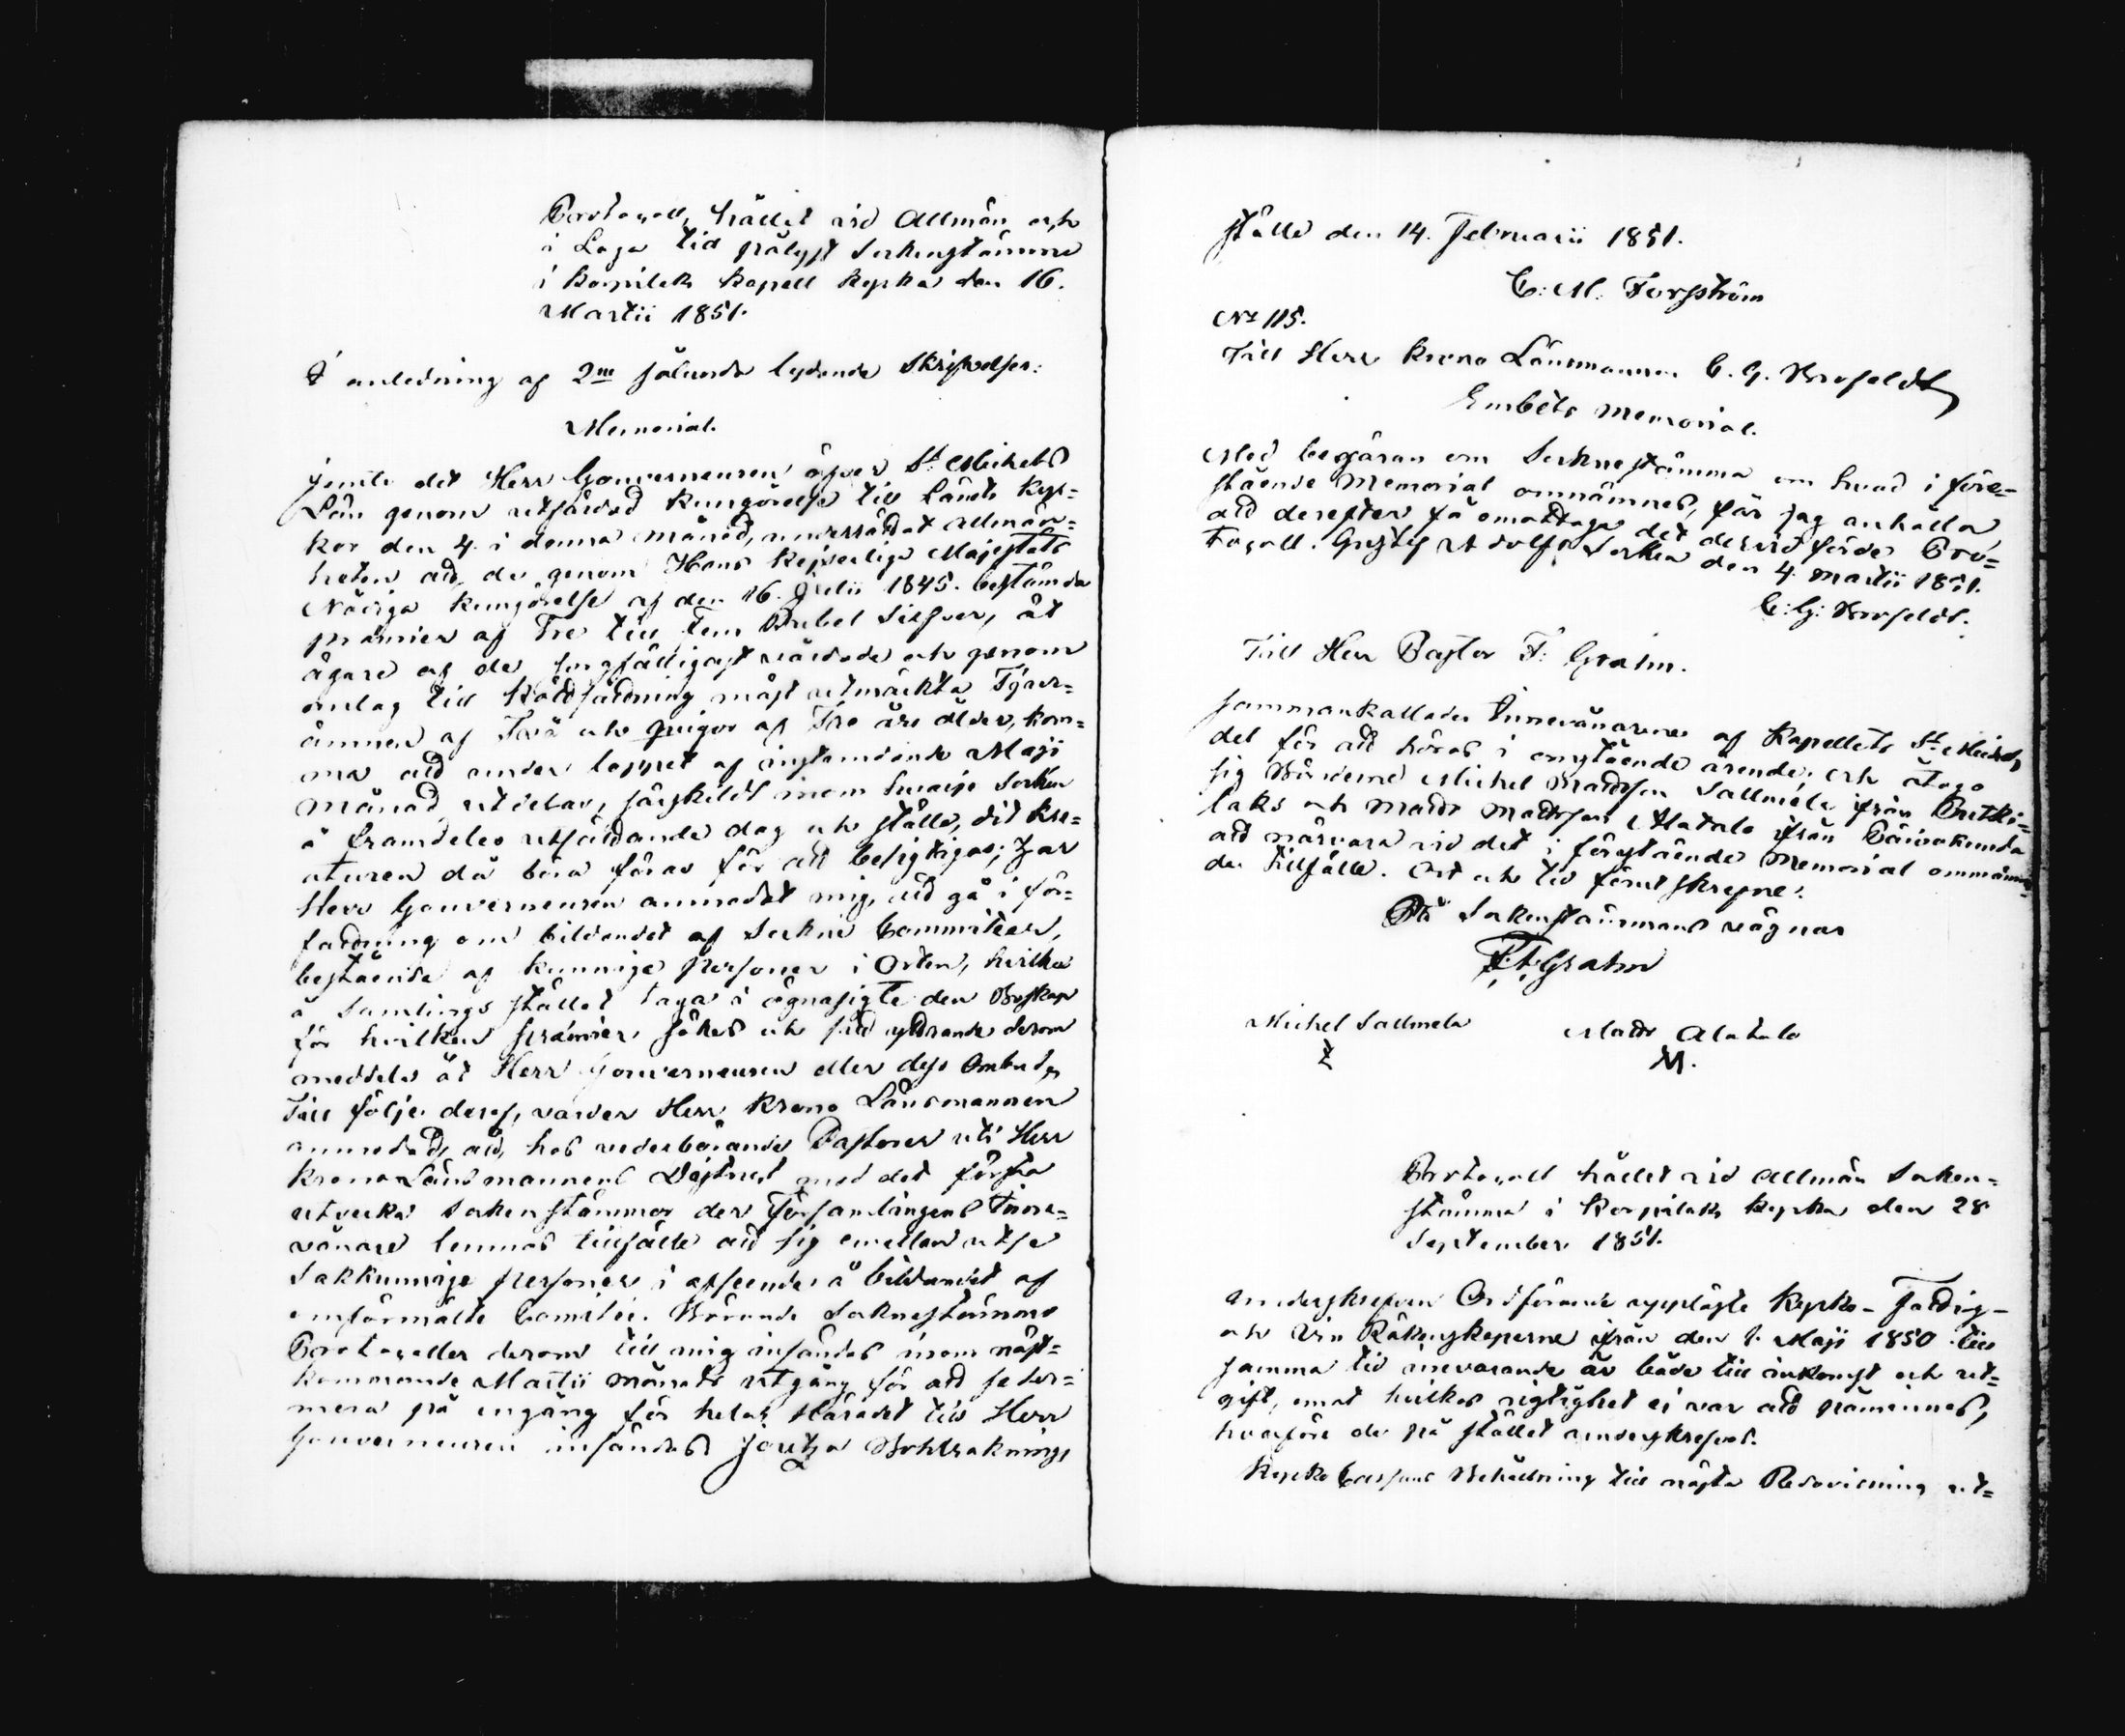 Protocoll, hållet vid Allmän och
i Laga tid pålyst Sockenstämma
i Korpilaks Kapell Kyrka den 16.
Martii 1851.
I anledning af 2ne sålunda lydande Skrifvelser:
Memorial.
Jemte det Herr Gouverneuren öfver St Michels
Län genom utfärdad Kungörelse till Länets Kyr=
kor den 4. i denna månad, underrättat Allmän=
heten att, de genom Hans Kejserliga Majestäts
Nådiga Kungörelse af den 16. Julii 1845. bestämda
præmier af Tre till Fem Rubel Silfver, åt
ägare af de sorgfälligast vårdade och genom
anlag till köttsättning mäst utmärkta Tjur=
ämnen af Två och Quigor af Tre års ålder, kom=
ma att under loppet af instundande Maji
månad utdelas, särskildt inom hvarje Socken
å framdeles utsättande dag och ställe, dit Kre=
aturen då böra föras för att besigtigas; har
Herr Gouverneuren anmodat mig, att gå i för=
fattning om bildandet af Sockne Committéer,
bestående af kunnige personer i Orten, hvilka
å Samlings stället taga i ögnasigte den Boskap
för hvilken præmier sökes och sitt yttrande derom
meddela åt Herr Gouverneuren eller dess Ombud,
Till följe deraf, varder Herr Krono Länsmannen
anmodad, att, hos vederbörande Pastorer uti Herr
Krono Länsmannens District med det första
utverka Sockenstämmor der Församlingens Inne=
vånare lemnas tillfälle att sig emellan utse
Sakkunnige personer i afseende å bildandet af
omförmälte Comitée. Börande Sockenstämmo
Protocoller derom till mig insändas inom näst=
kommande Martii månads utgång för att seder=
mera på en gång för hela Häradet till Herr
Gouverneuren insändas Joutsa Bohlsaknings
ställe den 14. Februarii 1851.
C: M: Forsström
No 115.
Till Herr Krono Länsmannen C. G. Brofeldt
Embets Memorial.
Med begäran om Socknestämma om hvad i före=
stående Memorial omnämnes, får jag anhålla
att derefter få emottaga det dervid förde Pro=
tocoll. Gustaf Adolfs Socken den 4. Martii 1851.
C: G: Brofeldt.
Till Herr Pastor F: Grahn.
Sammankallades Innevånarene af Kapellets St Michels
del för att höras i omstående ärende, och åtogo
sig Bönderne Michel Mattsson Sallmela från Putki=
laks och Matts Mattsson Alatalo från Päivakunda
att närvara vid det i förestående Memorial omnämn=
da tillfälle. Ort och tid förutskrefne.
På Sockenstämmans vägnar
F: Grahn
Michel Sallmela Matts Alatalo
M.
Protocoll hållet vid Allmän Socken=
stämma i Korpilaks Kyrka den 28
September 1851.
Undersskrefven Ordförande upplägte Kyrko- Fattig-
och Vin Räkenskaperne från den 1. Maji 1850 till
samma tid innevarande år både till inkomst och ut=
gift, emot hvilkas rigtighet ej var att påminnas,
hvarföre de på stället underskrefvos.
Kyrko Cassans Behållning till nästa Redovisning ut=